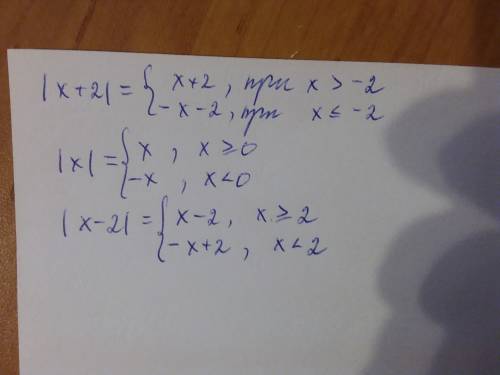 |x+2| = { x+2 , при x > -2
-x-2 , при x ≤ -2
|x| = { x , x ≥ 0
-x , x < 0
|x-2| = { x-2 , x ≥ 2
-x+2 , x < 2